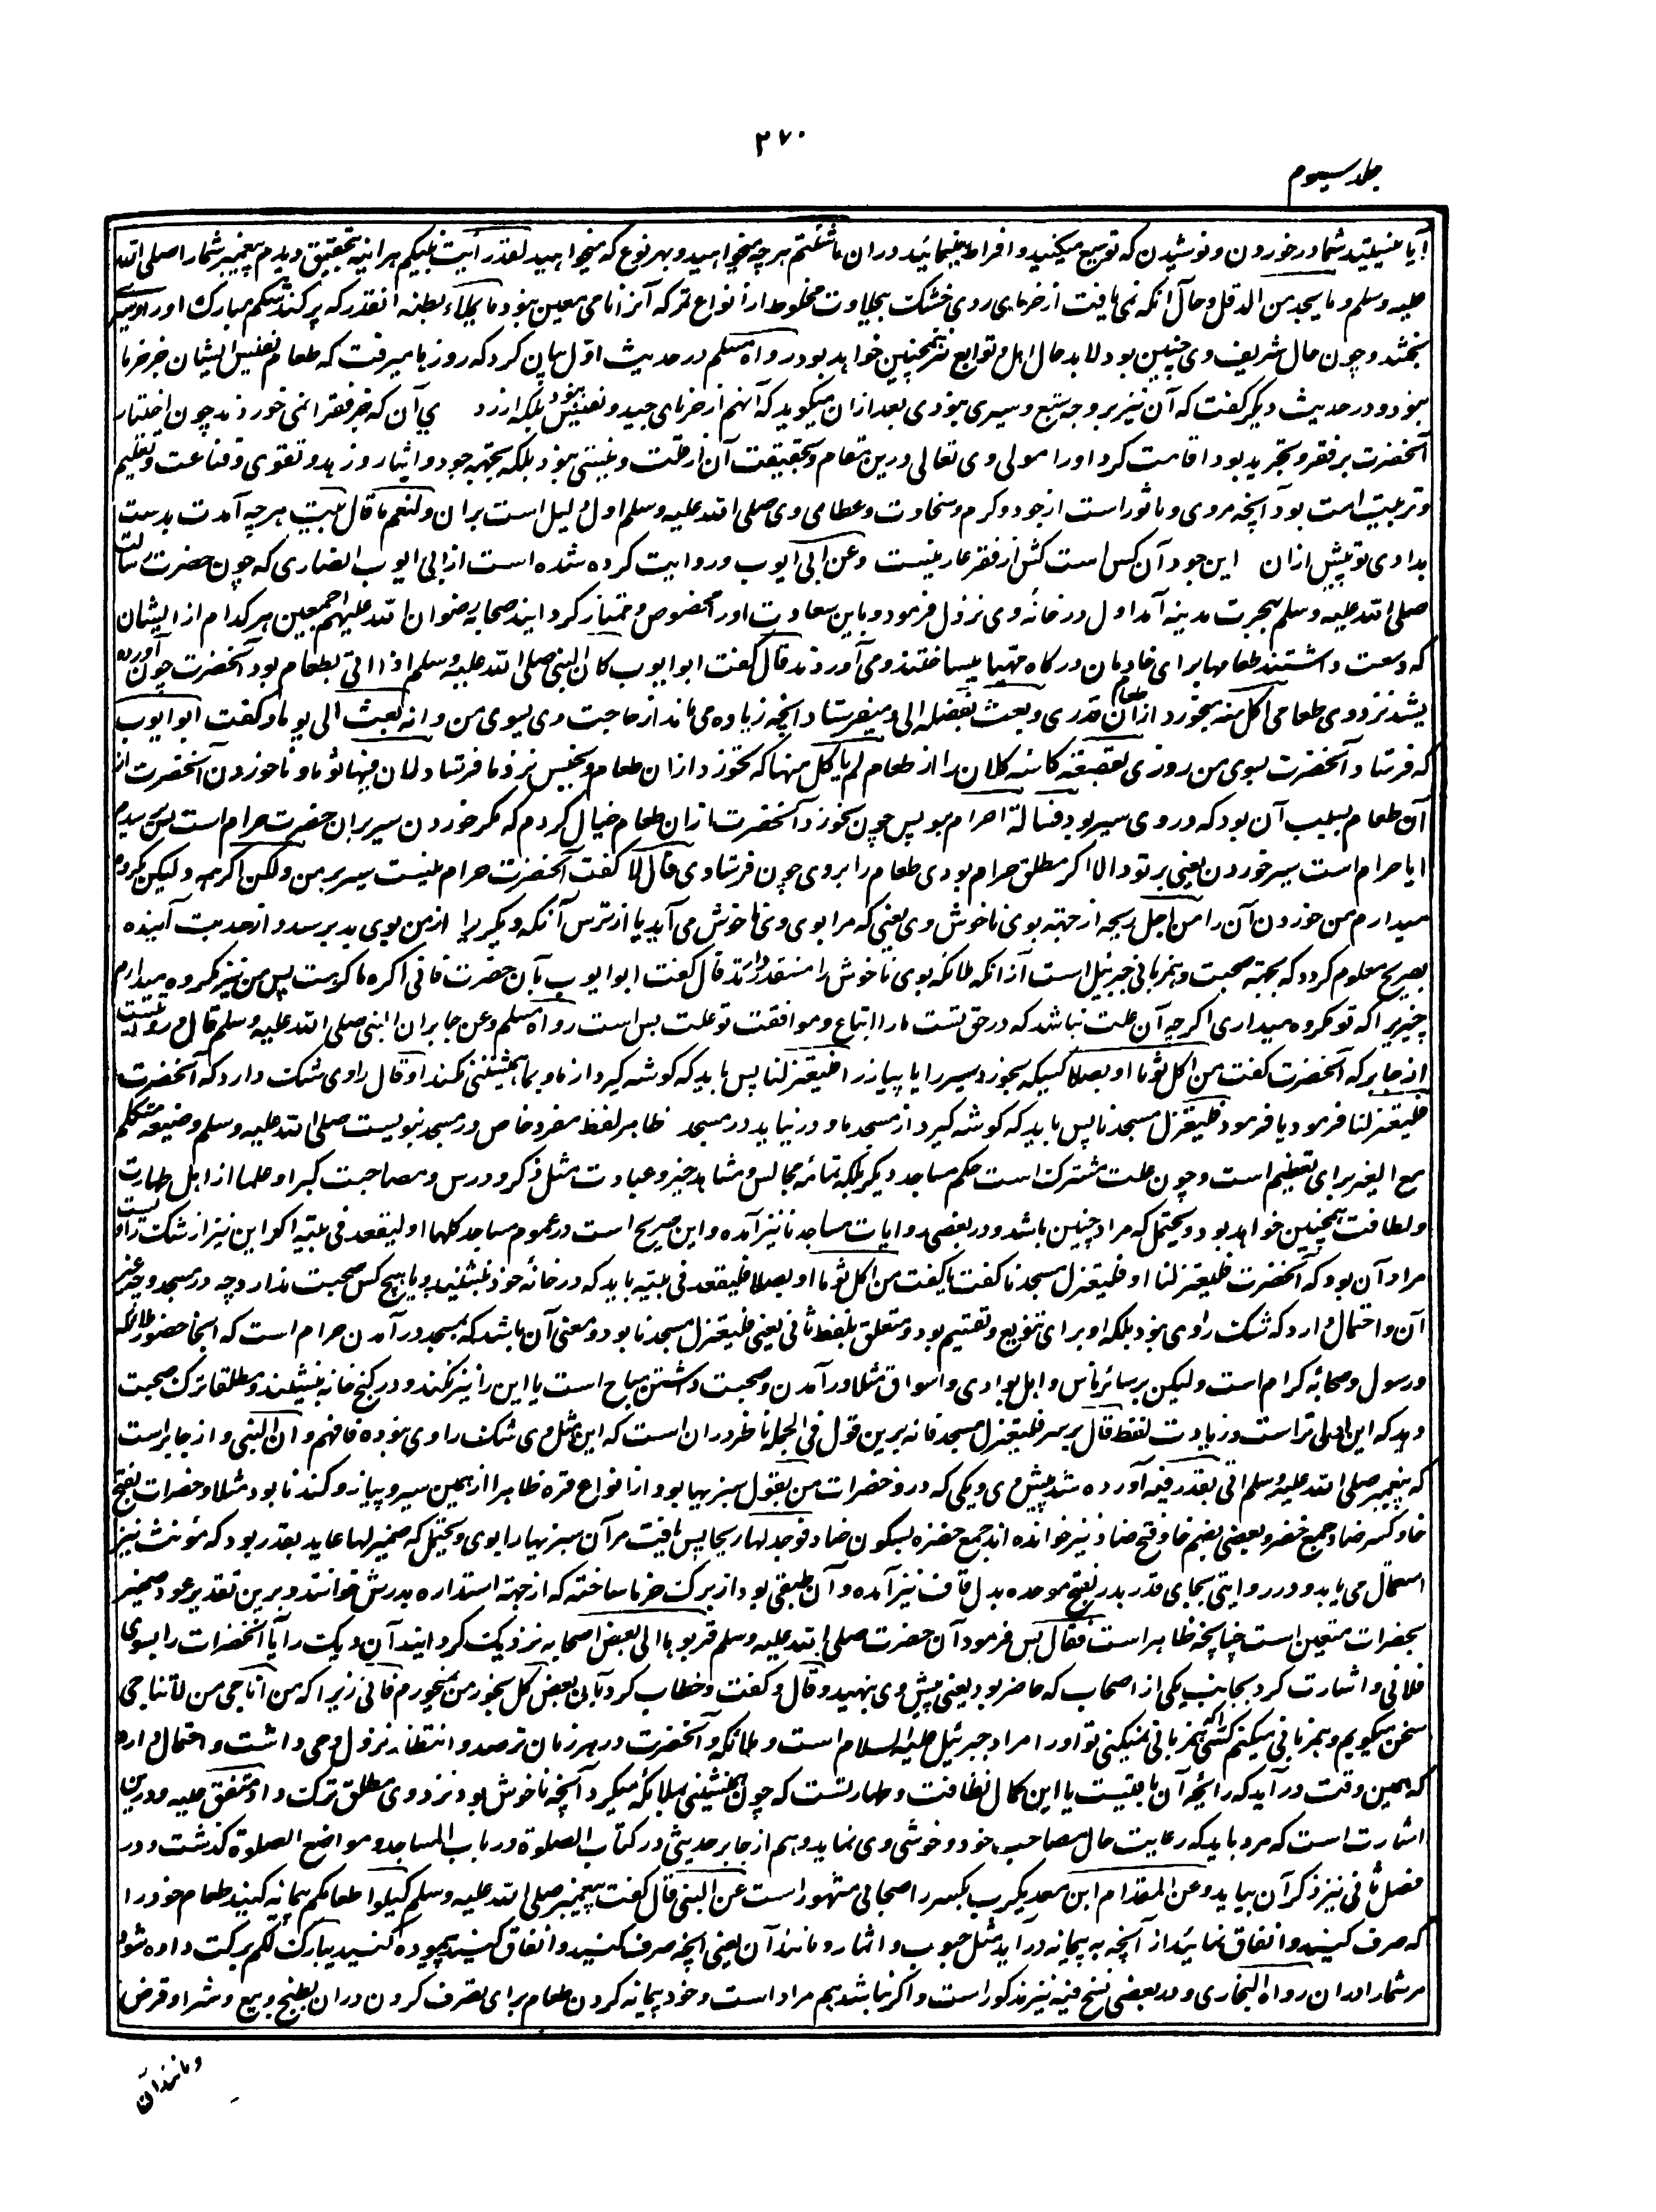 ۲۷۰
جلد سیوم
آیا نیستید شما در خوردن و نوشیدن که توسیع میکنید و افراط مینمائید در ان ما شئتم هر چه میخواهید و بهر نوع که میخواهید لقد رأیت نبیکم هر اینه بتحقیق دیدم پیغمبر شما را صلی الله
علیه وسلم و ما یجد من الدقل و حال آنکه نمی یافت از خرمای ردی خشک مخلوط از أنواع تمر که آنرا نامی معین نبود ما یملاء بطنه آنقدر که پر کند شکم مبارک او را و سیر
بخشد و چون حال شریف وی چنین بود لا بد حال اهل و توابع نیز همچنین خواهد بود رواه مسلم در حدیث اوّل بیان کرد که روزها میرفت که طعام نفیس ایشان جز خرما
نبود و در حدیث دیگر گفت که آن نیز بر وجه شبع و سیری نبودی بعد ازان میگوید که آنهم از خرمای جید و نفیس نبود بلکه از رد ي آن که جز فقرا نمی خورند چون اختیار
آنحضرت بر فقر و تجرید بود اقامت کرد او را مولی وی تعالی درین مقام و بحقیقت آن از قلت و نیستی نبود بلکه بجهة جود و ایثار و زهد و تقوی و قناعت و تعلیم
و تربیت امت بود آنچه مروی و ماثور است از جود و کرم و سخاوت و عطای وی صلی الله علیه وسلم اول دلیل است بران و لنعم ما قال بیت هر چه آمدت بدست
بدادی تو پیش ازان این جود آن کس است کش از فقر عار نیست وعن ابی ایوب و روایت کرده شده است از ابی ایوب انصاری که چون حضرت رسالت
صلی الله علیه وسلم بهجرت مدینه آمد اول در خانه وی نزول فرمود و باین سعادت او را مخصوص و ممتاز گردانید صحابه رضوان الله علیهم اجمعین هر کدام از ایشان
که وسعت داشتند طعامها برای خادمان درگاه مهیا میساختند و می آوردند قال گفت ابو ایوب کان النبی صلی الله علیه وسلم اذا اتی بطعام بود آنحضرت چون آورده
میشد نزد وی طعامی اکل منه میخورد از ان طعام قدری و بعث بفضله الی و میفرستاد آنچه زیاده می ماند از حاجت وی بسوی من و انه بعث الی یوما و گفت ابو ایوب
که فرستاد آنحضرت بسوی من روزی بقصعة کاسه کلان را از طعام لم یاکل منها که نخورد ازان طعام و بجنس نزد ما فرستاد لان فیها ثوما و ناخوردن آنحضرت از
آن طعام بسبب آن بود که در وی سیر بود فسالته احرام هو پس چون نخورد آنحضرت ازان طعام خیال کردم که مگر خوردن سیر بران حضرت حرام است پس پرسیدم
ایا حرام است سیر خوردن یعنی بر تو و الا اگر مطلق حرام بودی طعام را بروی چون فرستادی قال لا گفت آنحضرت حرام نیست سیر بر من ولکن اکرهه و لیکن مکروه
میدارم من خوردن آن را من اجل ریحه از جهته بوی ناخوش وی یعنی که مرا بوی وی ناخوش می آید یا از ترس آنکه دیگریرا از من بوی بد برسد و از حدیت آینده
بصریح معلوم گردد که بجهة صحبت و همزبانی جبرئیل است از انکه ملائکه بوی ناخوش را مستقذر دارند قال گفت ابو ایوب بآن حضرت فانی اکره ما کرهت پس من نیز مکروه میدارم
چیزیرا که تو مکروه میداری اگر چه آن علت نباشد که در حق تست مارا اتباع و موافقت تو علت بس است رواه مسلم وعن جابر ان النبی صلی الله علیه وسلم قال و روایتست
از جابر که آنحضرت گفت من اکل ثوما او بصلا کسیکه بخورد سیر را یا پیاز را فلیعتزلنا پس باید که گوشه گیرد از ما و بما همنشینی نکند او قال راوی شک دارد که آنحضرت
فلیعتزلنا فرمود یا فرمود فلیعتزل مسجدنا پس باید که گوشه گیرد از مسجد ما و در نیاید در مسجد ظاهر لفظ مفرد خاص در مسجد نبویست صلی الله علیه وسلم و صیغه متکلم
مع الغیر برای تعظیم است و چون علت مشترکست حکم مساجد دیگر بلکه تمامه مجالس و مشاهد خیر و عبادت مثل ذکر و درس و مصاحبت کبرا و علما از اهل طهارت
و لطافت همچنین خواهد بود و یحتمل که مراد چنین باشد و در بعضی روایات مساجدنا نیز آمده و این صریح است در عموم مساجد کلها او لیقعد فی بیته او این نیز از شک راویست
مراد آن بود که آنحضرت فلیعتزلنا او فلیعتزل مسجدنا گفت یا گفت من اکل ثوما او بصلا فلیقعد فی بیته باید که در خانه خود نبشیند و با هیچ کس صحبت ندارد چه در مسجد و چه غیر
آن و احتمال دارد که شک راوی نبود بلکه او برای تنویع و تقسیم بود و متعلق بلفظ ثانی یعنی فلیعتزل مسجدنا بود و معنی آن باشد که بمسجد در آمدن حرام است که آنجا حضور ملائکه
و رسول و صحابهٔ کرام است و لیکن بر سائر ناس و اهل بوادی و اسواق مثلا در آمدن و صحبت داشتن مباح است یا این را نیز نکند و در کنج خانه بنشیند و مطلقا ترک صحبت
دهد که این اولی تر است و زیادت لفظ قال بر سر فلیعتزل مسجدنا نه برین قول فی الجمله ناظر در ان است که این مثل وی شک راوی نبوده فافهم و ان النبی و از جابر است
که پیغمبر صلی الله علیه وسلم اتی بقدر فیه آورده شد پیش وی دیگی که در و خضرات من بقول سبزیها بود از انواع تره ظاهرا از همین سیر و پیاز و کندنا بود مثلا و خضرات بفتح
خا و کسر ضاد جمع خضر و بعضی بضم خا و فتح ضاد نیز خوانده اند جمع خضره بسکون ضاد فوجد لها ریحا پس یافت مر آن سبزیها را بوی و یحتمل که ضمیر لها عاید بقدر بود که مؤنث نیز
استعمال می یابد و در روایتی بجای قدر بدر بفتح موحده بدل قاف نیز آمده و آن طبقی بود از برگ خرما ساخته که از جهة استداره بدرش خوانند و برین تقدیر عود ضمیر
بخضرات متعین است چنانچه ظاهر است فقال پس فرمود آن حضرت صلی الله علیه وسلم قربوها الی بعض اصحابه نزدیک گردانید آن دیگ را یا آنخضرات را بسوی
فلانی و اشارت کرد بجانب یکی از اصحاب که حاضر بود یعنی پیش وی بنهید و قال و گفت و خطاب کرد بآن بعض کل بخور من نمیخورم فانی زیرا که من اناجی من لا تناجی
سخن میگویم و همزبانی میکنم کسی را که همزبانی نمیکنی تو او را مراد جبرئیل علیه السلام است و ملائکه و آنحضرت در هر زمان ترصد و انتظار نزول وحی داشت و احتمال دارد
که همین وقت در آید که رائحهٔ آن باقیست یا این کمال نظافت و طهارتست که چون همنشینی ملائکه میکرد آنچه ناخوش بود نزد وی مطلق ترک داد متفق علیه و درین
اشارت است که مرد باید که رعایت حال مصاحب خود و خوشی وی نماید و هم از جابر حدیثی در کتاب الصلوة در باب المساجد و مواضع الصلوة گذشت و در
فصل ثانی نیز ذکر آن بیاید وعن المقدام ابن معدیکرب بکسر را صحابی مشهور است عن النبی قال گفت پیغمبر صلی الله علیه وسلم کیلوا طعامکم پیمانه کنید طعام خود را
که صرف کنید و انفاق نمائید از آنچه به پیمانه در آید مثل حبوب و اثمار و مانند آن یعنی آنچه صرف کنید و انفاق کنید پیموده کنید یبارک لکم برکت داده شود
مر شما را در ان رواه البخاری و در بعضی نسخ فیه نیز مذکور است و اگر نباشد هم مراد است و خود پیمانه کردن طعام برای تصرف کردن دران بطبخ و بیع و شرا و قرض
و مانند آن